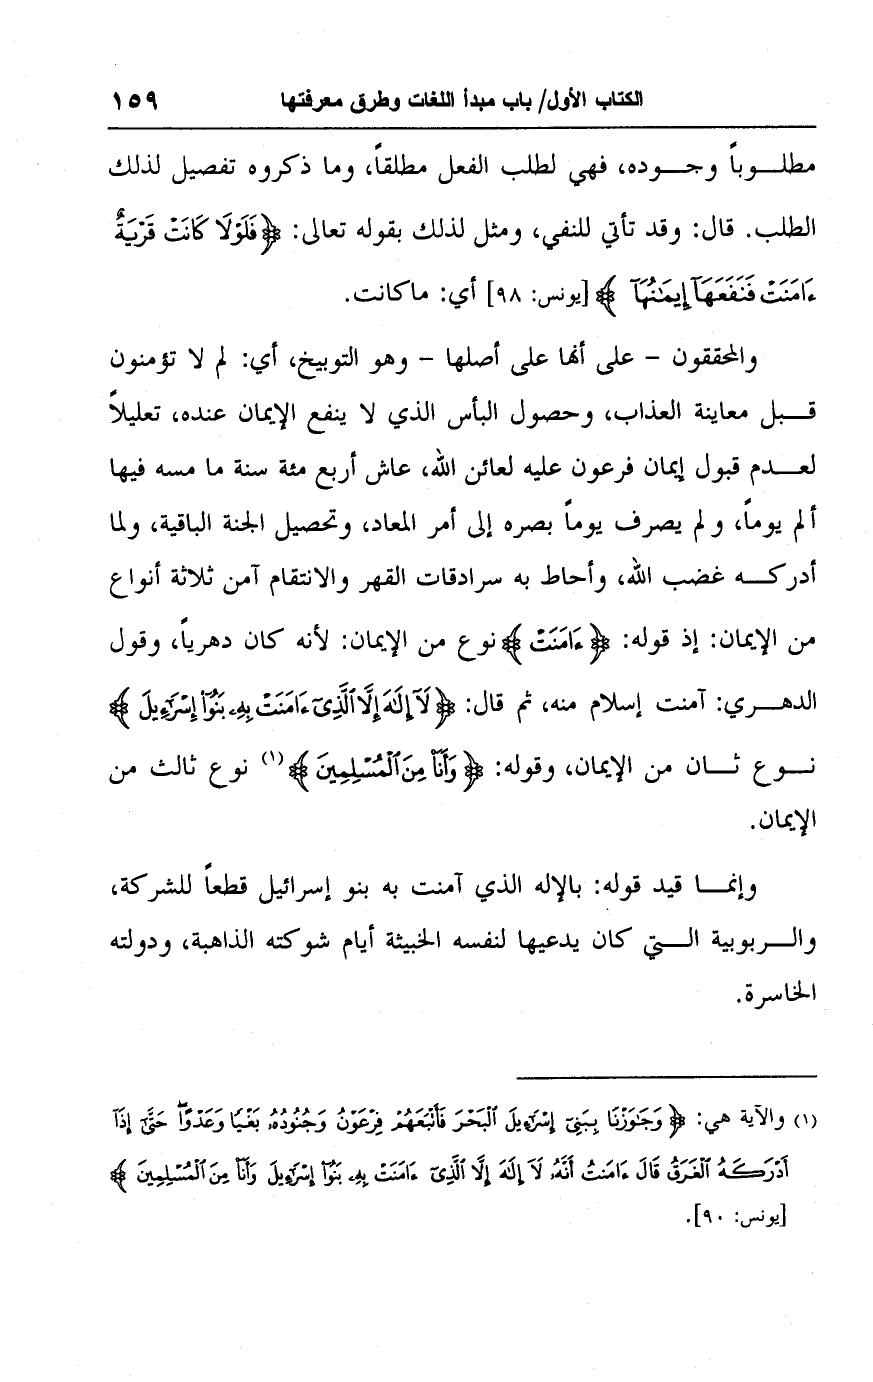 الكتاب الأول/ باب مبدأ اللغات وطرق معرفتها ١٥٩
مطلوباً وجوده، فهي لطلب الفعل مطلقاً، وما ذكروه تفصيل لذلك
الطلب. قال: وقد تأتي للنفي، ومثل لذلك بقوله تعالى: ﴿فَلَوْلَا كَانَتْ قَرْيَةٌ
ءَامَنَتْ فَنَفَعَهَآ إِيمَٰنُهَآ﴾ [يونس: ٩٨] أي: ماكانت.
والمحققون – على أنها على أصلها – وهو التوبيخ، أي: لم لا تؤمنون
قبل معاينة العذاب، وحصول البأس الذي لا ينفع الإيمان عنده، تعليلاً
لعدم قبول إيمان فرعون عليه لعائن الله، عاش أربع مئة سنة ما مسه فيها
ألم يوماً، ولم يصرف يوماً بصره إلى أمر المعاد، وتحصيل الجنة الباقية، ولما
أدركه غضب الله، وأحاط به سرادقات القهر والانتقام آمن ثلاثة أنواع
من الإيمان: إذ قوله: ﴿ءَامَنتُ﴾ نوع من الإيمان: لأنه كان دهرياً، وقول
الدهري: آمنت إسلام منه، ثم قال: ﴿لَآ إِلَٰهَ إِلَّا ٱلَّذِىٓ ءَامَنَتْ بِهِۦ بَنُوٓا۟ إِسْرَٰٓءِيلَ﴾
نوع ثان من الإيمان، وقوله: ﴿وَأَنَا۠ مِنَ ٱلْمُسْلِمِينَ﴾(١) نوع ثالث من
الإيمان.
وإنما قيد قوله: بالإله الذي آمنت به بنو إسرائيل قطعاً للشركة،
والربوبية التي كان يدعيها لنفسه الخبيثة أيام شوكته الذاهبة، ودولته
الخاسرة.
(١) والآية هي: ﴿وَجَٰوَزْنَا بِبَنِىٓ إِسْرَٰٓءِيلَ ٱلْبَحْرَ فَأَتْبَعَهُمْ فِرْعَوْنُ وَجُنُودُهُۥ بَغْيًا وَعَدْوًا ۖ حَتَّىٰٓ إِذَآ
أَدْرَكَهُ ٱلْغَرَقُ قَالَ ءَامَنتُ أَنَّهُۥ لَآ إِلَٰهَ إِلَّا ٱلَّذِىٓ ءَامَنَتْ بِهِۦ بَنُوٓا۟ إِسْرَٰٓءِيلَ وَأَنَا۠ مِنَ ٱلْمُسْلِمِينَ﴾
[يونس: ٩٠].